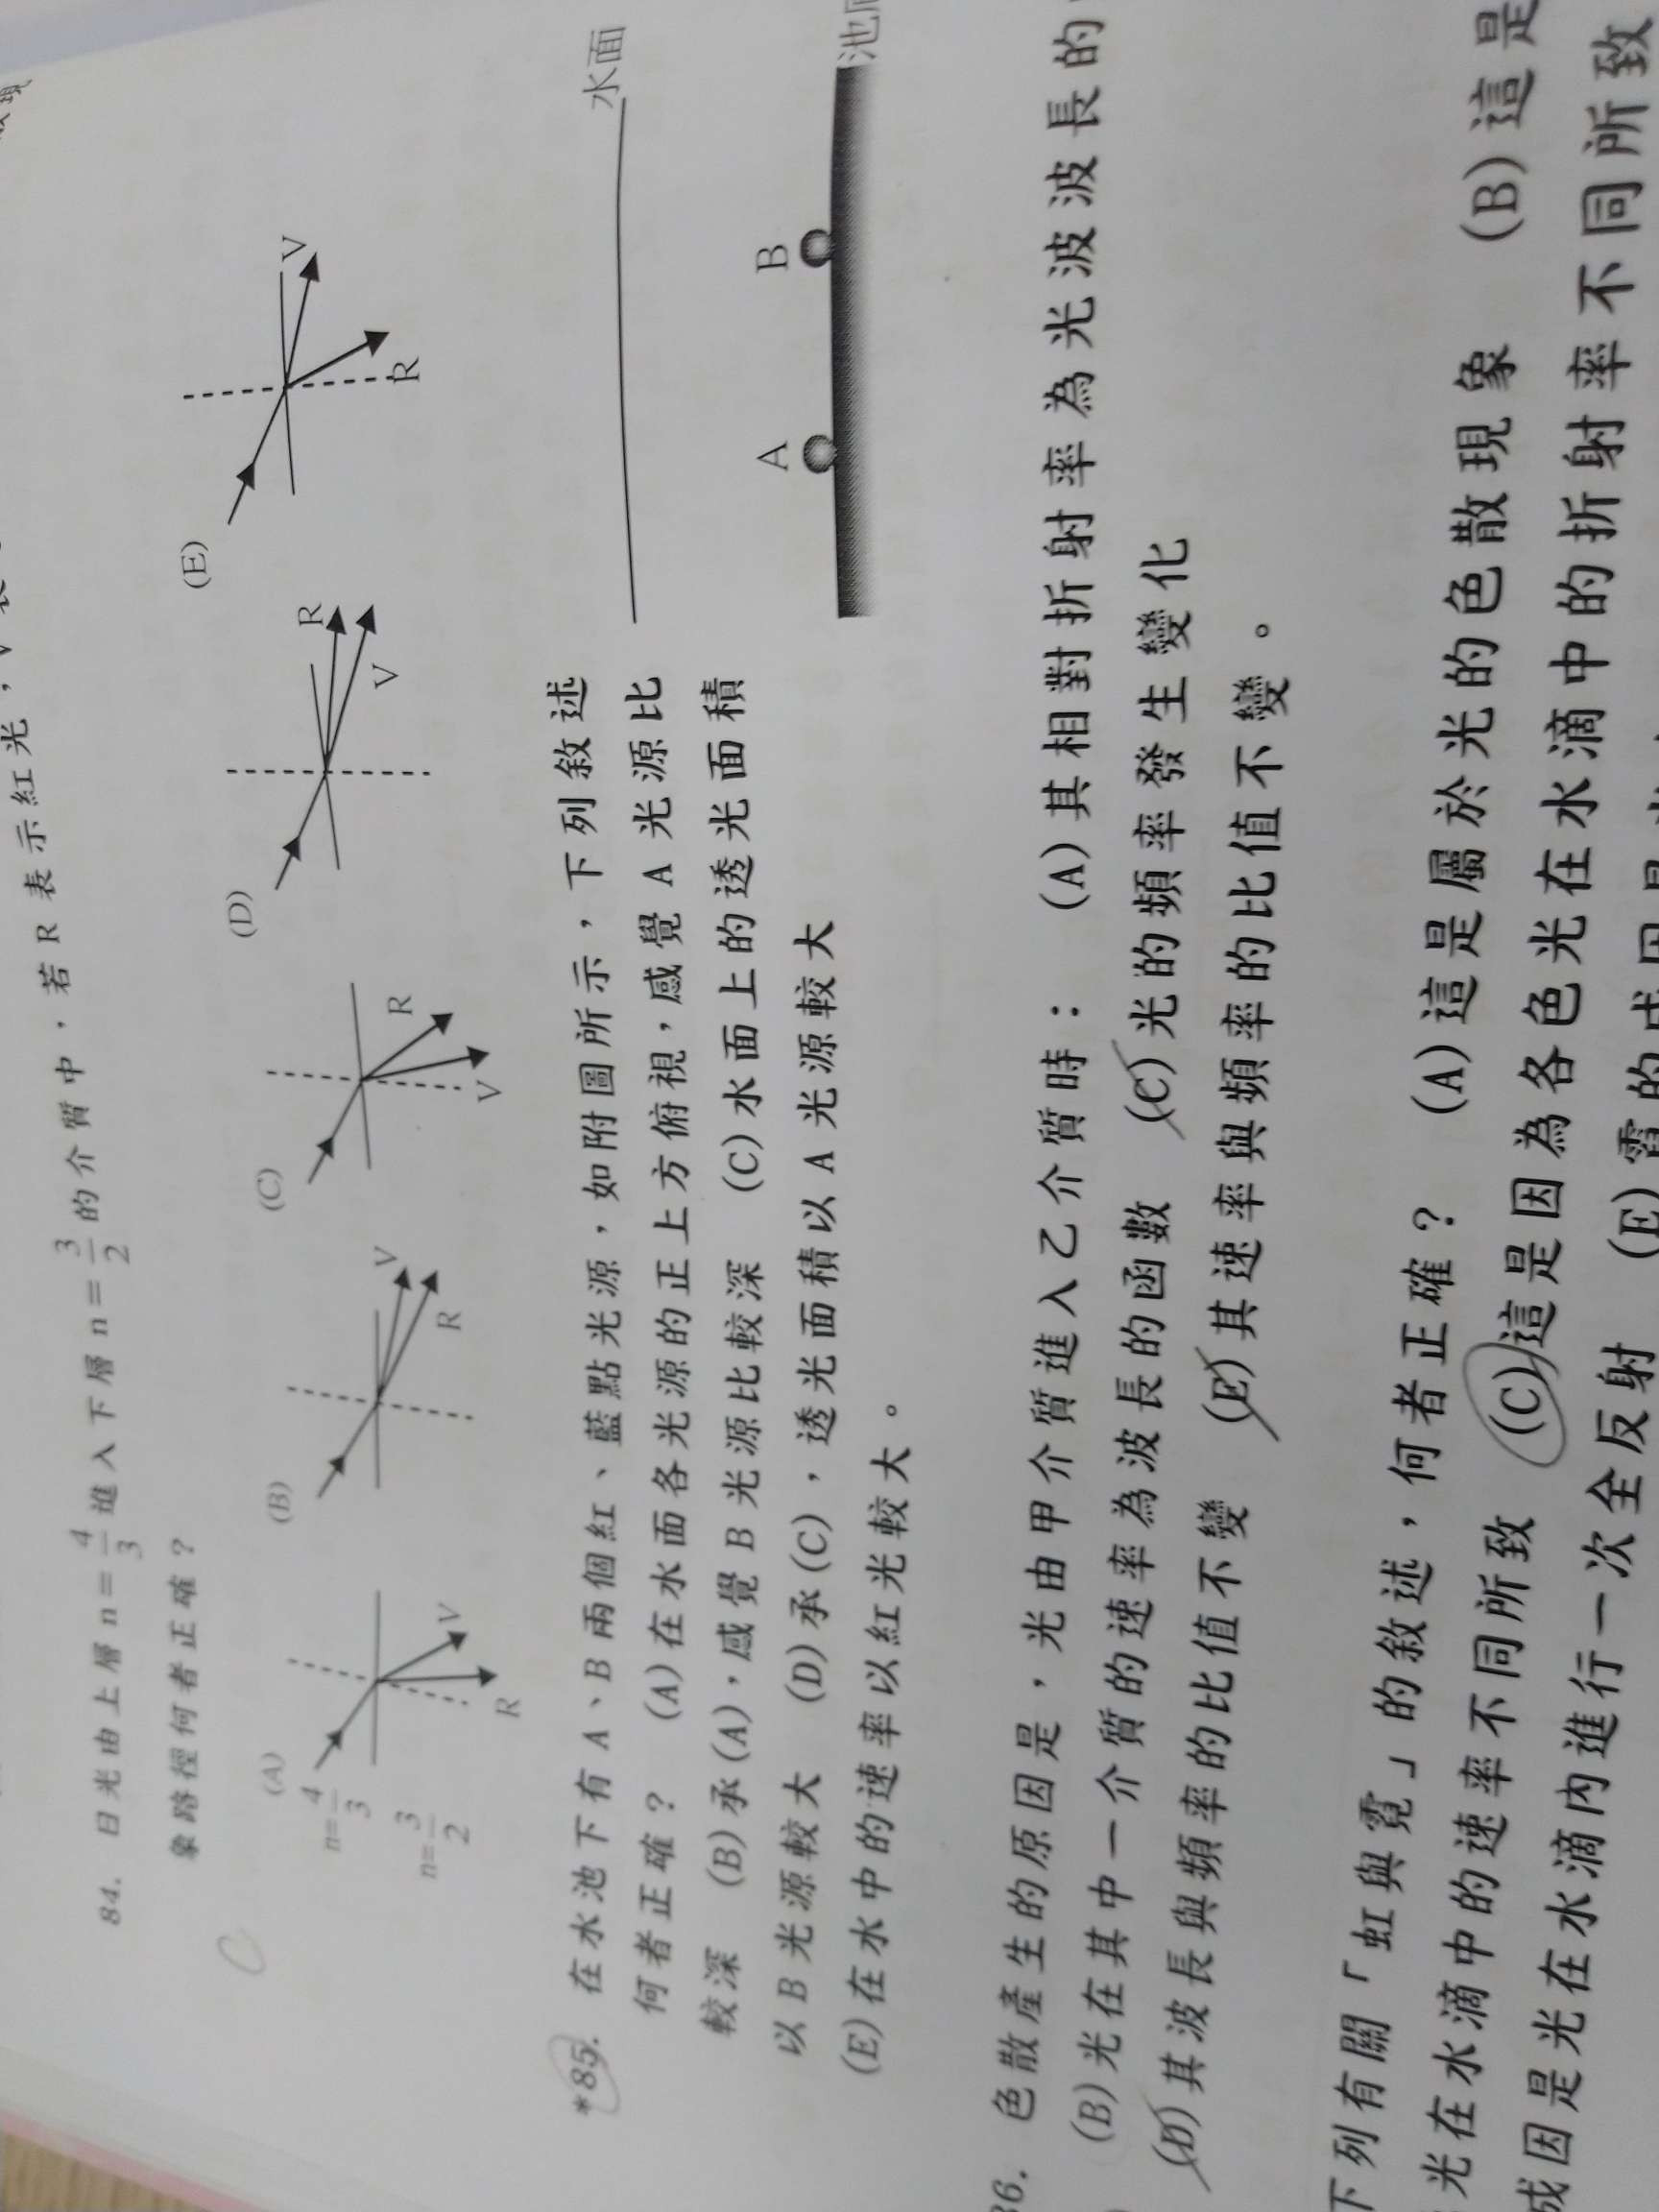 表示紅光，V
84. 日光由上層 n=4/3 進入下層 n=3/2 的介質中，若 R 表示紅光，V
象路徑何者正確？
(A) n=4/3 n=3/2 V R
(B) V R
(C) R V
(D) R V
(E) V R
*85. 在水池下有 A、B 兩個紅、藍點光源，如附圖所示，下列敘述
何者正確？ (A)在水面各光源的正上方俯視，感覺 A 光源比
較深 (B)承(A)，感覺 B 光源比較深 (C)水面上的透光面積
以 B 光源較大 (D)承(C)，透光面積以 A 光源較大
(E)在水中的速率以紅光較大。
水面
A B
池
86. 色散產生的原因是，光由甲介質進入乙介質時： (A)其相對折射率為光波波長的
(B)光在其中一介質的速率為波長的函數 (C)光的頻率發生變化
(D)其波長與頻率的比值不變 (E)其速率與頻率的比值不變。
下列有關「虹與霓」的敘述，何者正確？ (A)這是屬於光的色散現象 (B)這是
光在水滴中的速率不同所致 (C)這是因為各色光在水滴中的折射率不同所致
成因是光在水滴內進行一次全反射 (E)霓的成因是